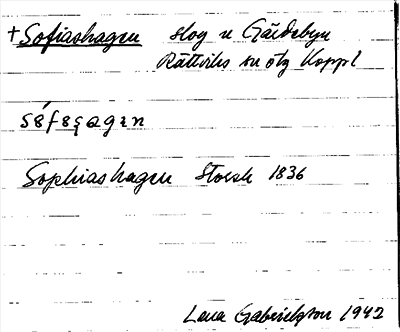 + Sofiashagen skog u Gärdebyn
Rättviks sn ötg Koppl
Sophiashagen Storsk 1836
Lena Gabrielsson 1942